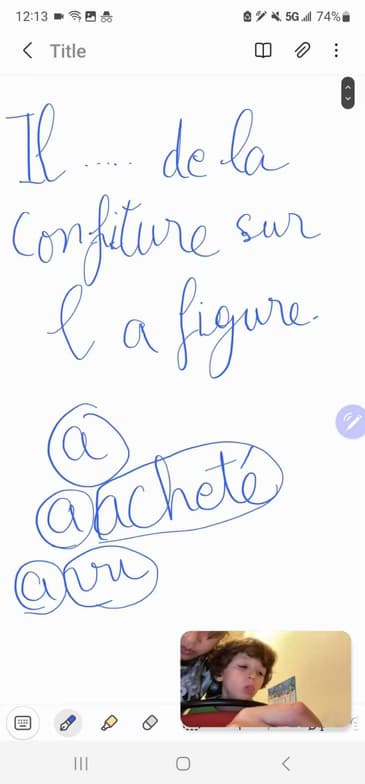 12:13 5G 74%
Title
Il .... de la
confiture sur
la figure.
a
a acheté
a vu